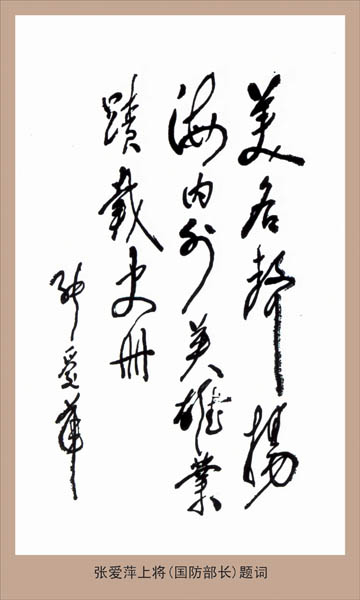 美名聲揚
海内外英雄業
蹟載史冊
张爱萍
张爱萍上将(国防部长)题词